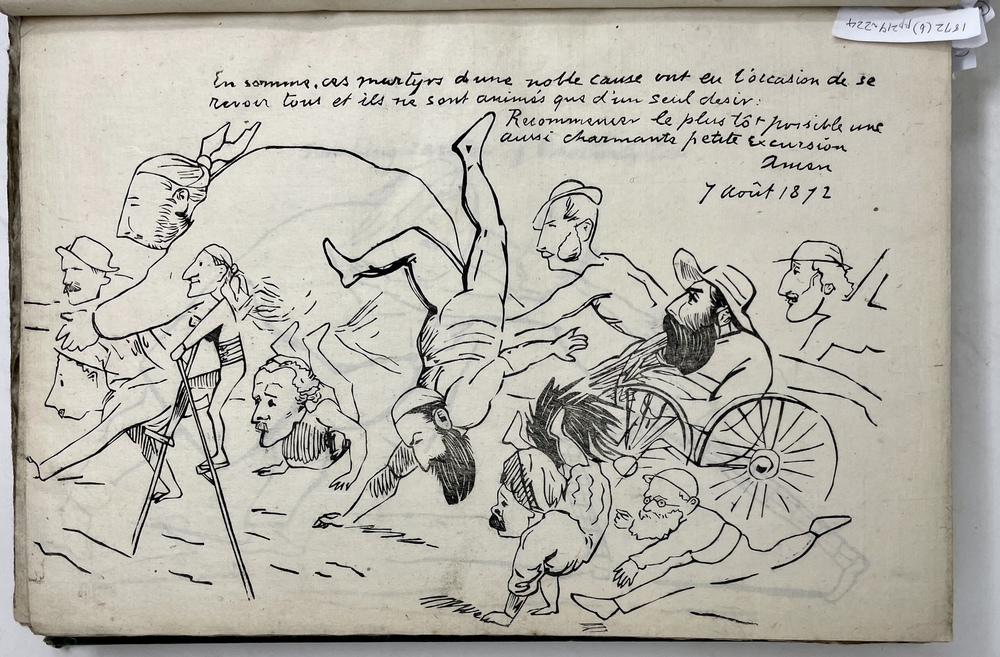 En somme, ces martyrs d'une noble cause ont eu l'occasion de se
revoir tous et ils ne sont animés que d'un seul desir:
Recommencer le plus tôt possible une
aussi charmante petite excursion
Amen
7 Août 1872
1872 (6) pp219-224